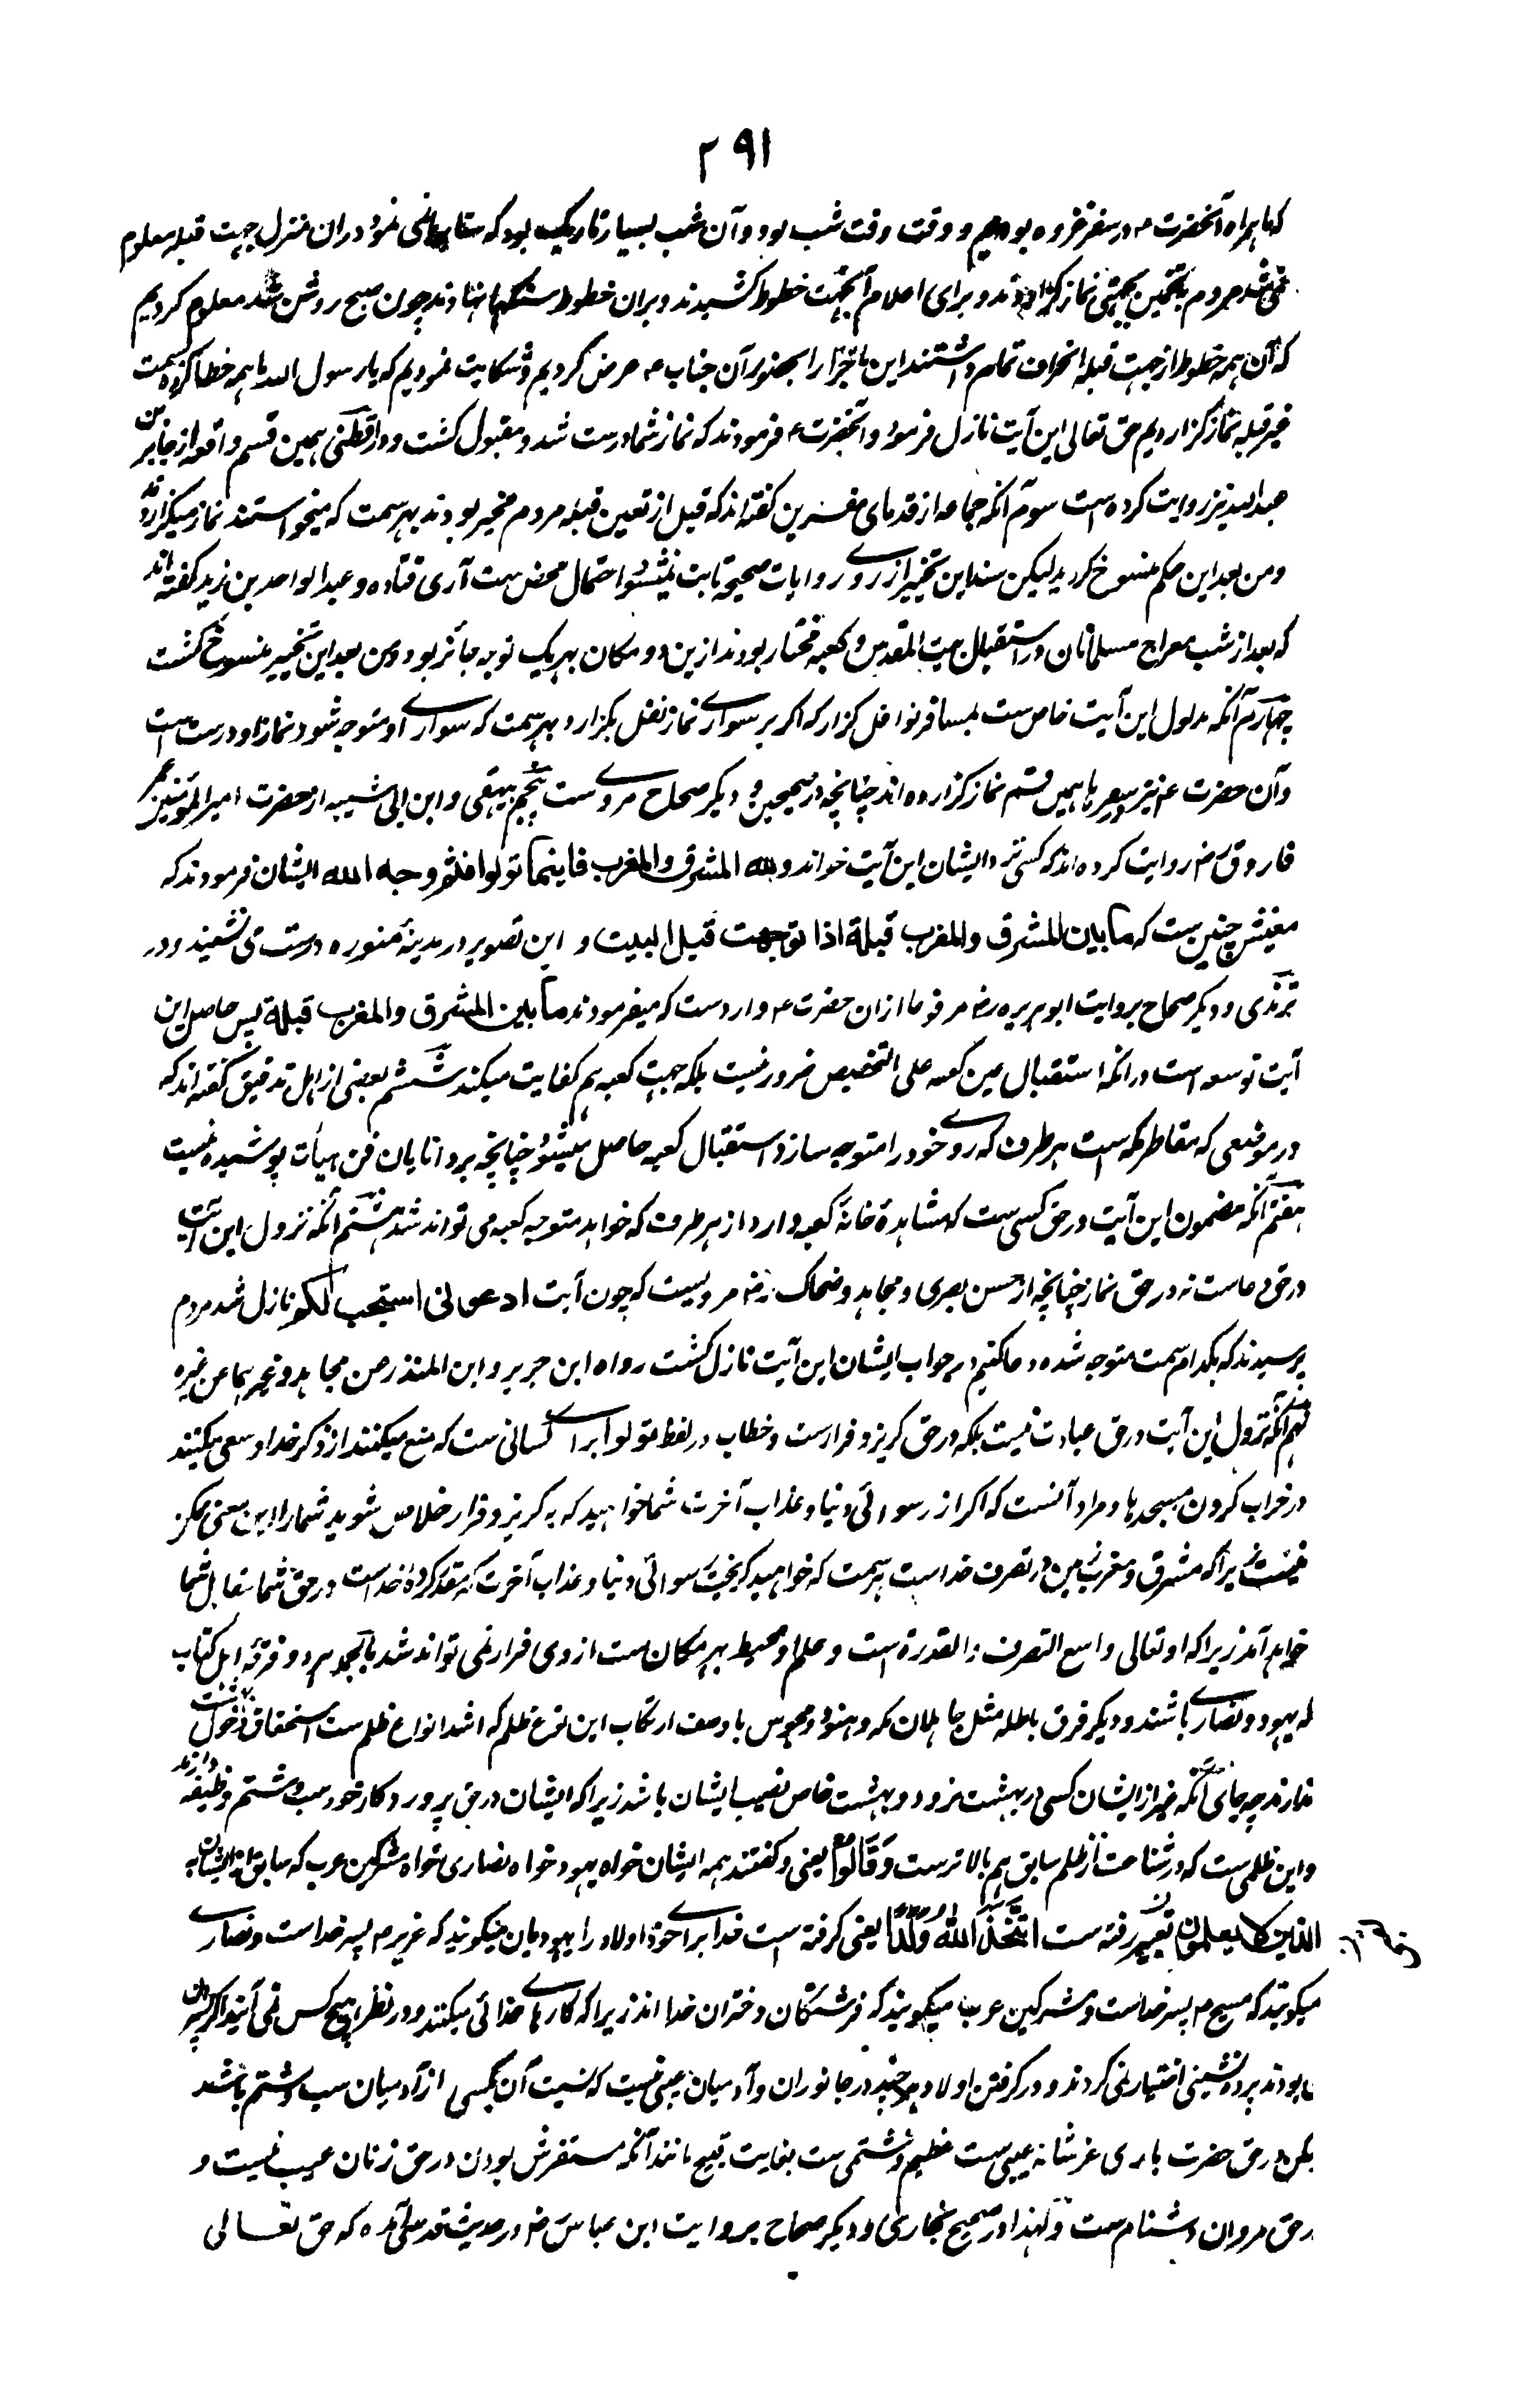 ۲۹۱
که ما همراه آنحضرت ۴ در سفر غزوه بودیم و وقت وقت شب بود و آن شب بسیار تاریک بود که ستاره نمی نمود دران منزل جهت قبله معلوم
نمی شد مردم بتخمین بجهتی نماز گزاردند و برای اعلام آنجهت خطوط کشیدند و بران خطوط سنگها نهادند چون صبح روشن شد معلوم کردیم
که آن همه خطوط از جهت قبله انحراف تمام داشتند این ماجرا را بحضور آن جناب ۴ عرض کردیم و شکایت نمودیم که یا رسول الله ما همه خطا کرده بسمت
غیر قبله نماز گزاردیم حق تعالی این آیت نازل فرمود و آنحضرت ۴ فرمودند که نماز شما درست شد و مقبول گشت و دارقطنی همین قسم واقعه از جابر بن
عبدالله نیز روایت کرده است سوم آنکه جماعه از قدمای مفسرین گفته اند که قبل از تعین قبله مردم مخیر بودند بهر سمت که میخواستند نماز میگزاردند
و من بعد این حکم منسوخ گردید لیکن سند این تخییر از روے روایات صحیحه ثابت نمیشود احتمال محض ست آری قتاده و عبدالواحد بن زید گفته اند
که بعد از شب معراج مسلمانان در استقبال بیت المقدس و کعبه مختار بودند ازین دو مکان بهر یک توجه جائز بود و من بعد این تخییر منسوخ گشت
چهارم آنکه مدلول این آیت خاص ست بمسافر نوافل گزار که اگر بر سوارے نماز نفل بگزارد بهر سمت که سوارے او متوجه شود نماز او درست است
و آن حضرت ۴ نیز در سفرها همین قسم نماز گزارده اند چنانچه در صحیحین و دیگر صحاح مروے ست پنجم بیهقی و ابن ابی شیبه از حضرت امیر المؤمنین عمر
فاروق رض روایت کرده اند که کسی نزد ایشان این آیت خواند ولله المشرق والمغرب فاینما تولوا فثم وجه الله ایشان فرمودند که
معنیش چنین ست که ما بین المشرق والمغرب قبلة اذا توجهت قبل البیت و این تصویر در مدینهٔ منوره درست می نشیند و در
ترمذی و دیگر صحاح بروایت ابوهریره رض مرفوعا ازان حضرت ۴ وارد ست که میفرمودند ما بین المشرق والمغرب قبلة پس حاصل این
آیت توسعه است در آنکه استقبال عین کعبه علی التخصیص ضرور نیست بلکه جهت کعبه هم کفایت میکند ششم بعضی از اهل تدقیق گفته اند که
در موضعی که مقاطر مکه است هر طرف که روے خود را متوجه سازد استقبال کعبه حاصل میشود چنانچه بر دانایان فن هیأت پوشیده نیست
هفتم آنکه مضمون این آیت در حق کسی ست که مشاهدهٔ خانهٔ کعبه دارد از هر طرف که خواهد متوجه کعبه می تواند شد هشتم آنکه نزول این آیت
در حق دعاست نه در حق نماز چنانچه از حسن بصری و مجاهد و ضحاک رض مرویست که چون آیت ادعونی استجب لکم نازل شد مردم
پرسیدند که بکدام سمت متوجه شده دعا کنیم در جواب ایشان این آیت نازل گشت رواه ابن جریر و ابن المنذر عن مجاهد و غیرهما عن غیره
نهم آنکه نزول این آیت در حق عبادت نیست بلکه در حق گریز و فرارست و خطاب در لفظ تولوا براے کسانی ست که منع میکنند از ذکر خدا و سعی میکنند
در خراب کردن مسجدها و مراد آنست که اگر از رسوائی دنیا و عذاب آخرت شما خواهید که به گریز و فرار خلاص شوید شما را این معنی ممکن
نیست زیرا که مشرق و مغرب زمین در تصرف خداست بهر سمت که خواهید گریخت رسوائی دنیا و عذاب آخرت که مقدر کردهٔ خداست در حق شما مقابل شما
خواهد آمد زیرا که او تعالی واسع التصرف والقدرة است و علم او محیط بهر مکان ست از وی فرار نمی تواند شد بالجمله هر دو فرقهٔ اهل کتاب
که یهود و نصارے باشند و دیگر فرق باطله مثل جاهلان مکه و هنود و مجوس باوصف ارتکاب این نوع ظلم که اشد انواع ظلم ست استحقاق دخول بهشت
ندارند چه جای آنکه غیر از ایشان کسی در بهشت نرود و بهشت خاص نصیب ایشان باشد زیرا که ایشان در حق پروردگار خود سب و شتم وظیفه دارند
و این ظلمی ست که در شناعت از ظلم سابق هم بالاترست وَقَالُوا یعنی و گفتند همه ایشان خواه یهود خواه نصاری خواه مشرکین عرب که سابق از ایشان به
الذین لا یعلمون تعبیر رفته ست اتَّخَذَ اللهُ وَلَدًا یعنی گرفته است خدا براے خود اولاد را یهودیان میگویند که عزیر ۴ پسر خداست و نصارے
میگویند که مسیح ۴ پسر خداست و مشرکین عرب میگویند که فرشتگان دختران خدا اند زیرا که کارهاے خدائی میکنند و در نظر هیچ کس نمی آیند اگر پسران
می بودند پرده نشینی اختیار نمی کردند و در گرفتن اولاد هر چند در جانوران و آدمیان عیبی نیست که نسبت آن بکسی از آدمیان سب و شتم باشد
لیکن در حق حضرت باری عز شانه عیبی ست عظیم و شتمی ست بغایت قبیح مانند آنکه مستفرش بودن در حق زنان عیب نیست و
در حق مردان دشنام ست و لهذا در صحیح بخاری و دیگر صحاح بروایت ابن عباس رض در حدیث قدسی آمده که حق تعالی